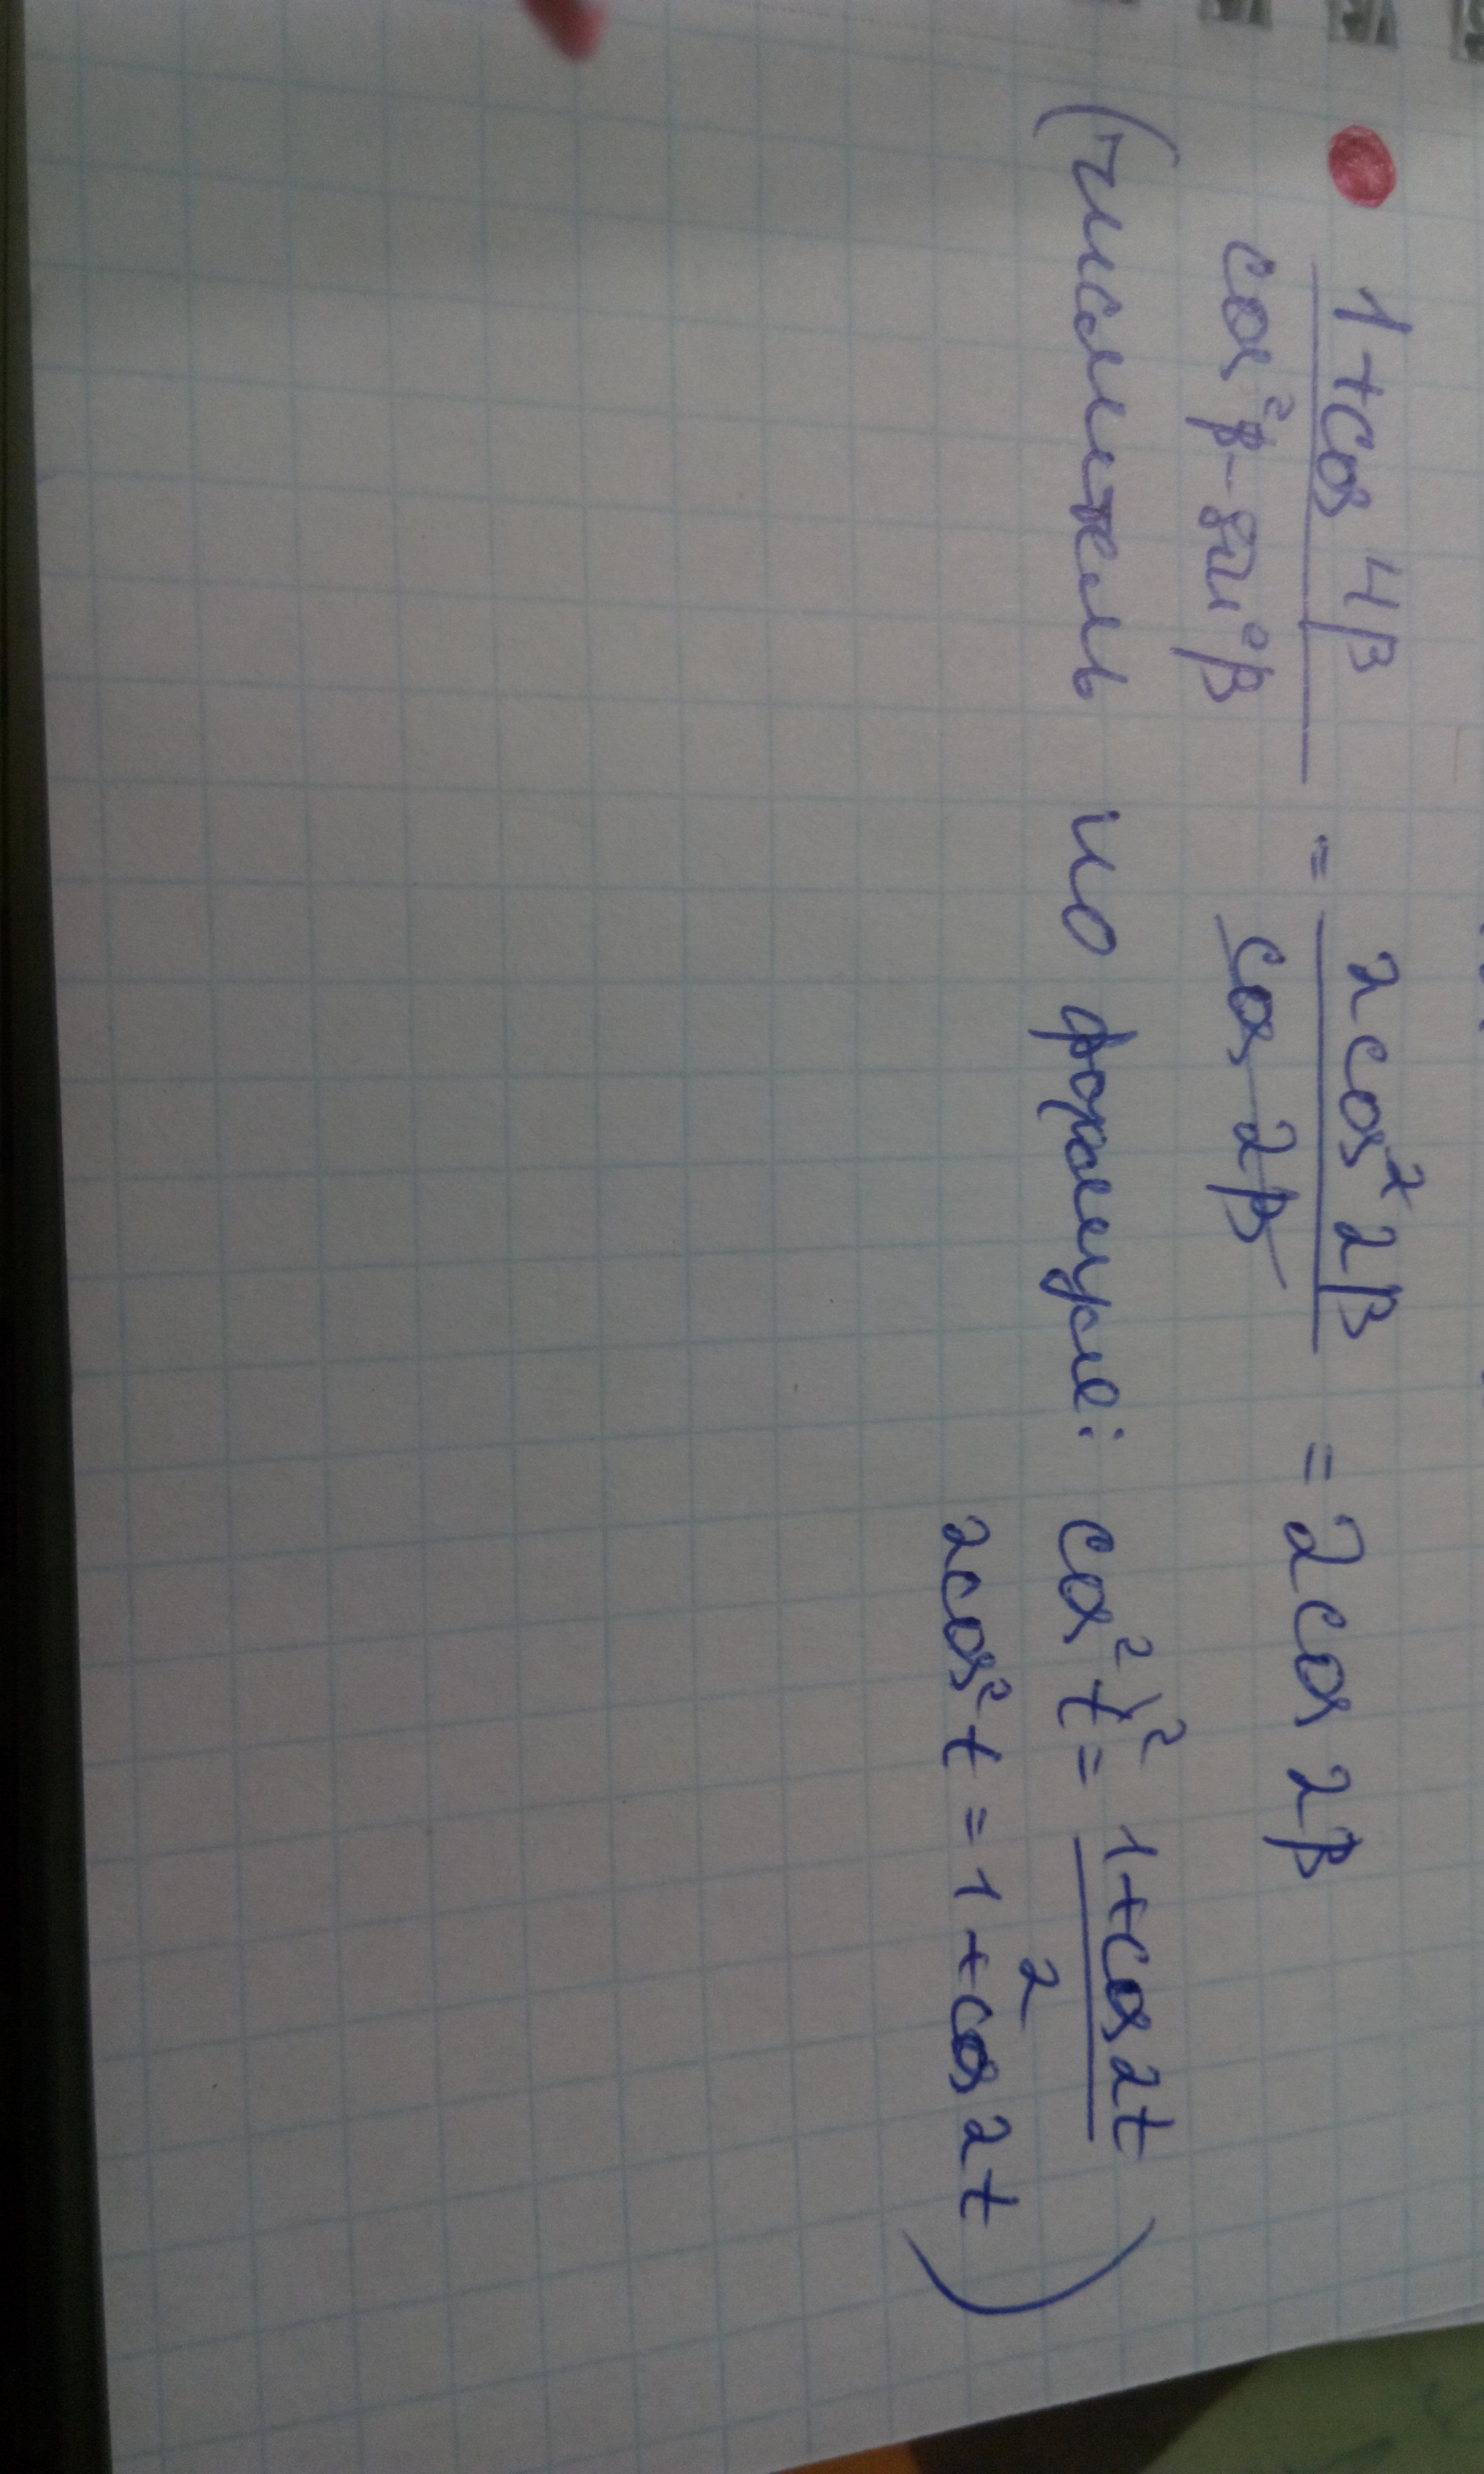 1+cos 4β / cos²β - sin²β = 2cos² 2β / cos 2β = 2cos 2β
(числитель по формуле: cos² t² = 1+cos 2t / 2
2cos² t = 1 + cos 2t)